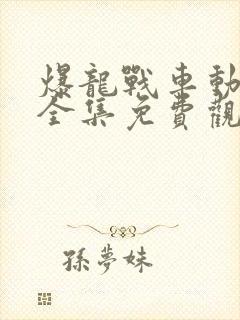 爆龍戰車動
全集免費觀
孫夢妹